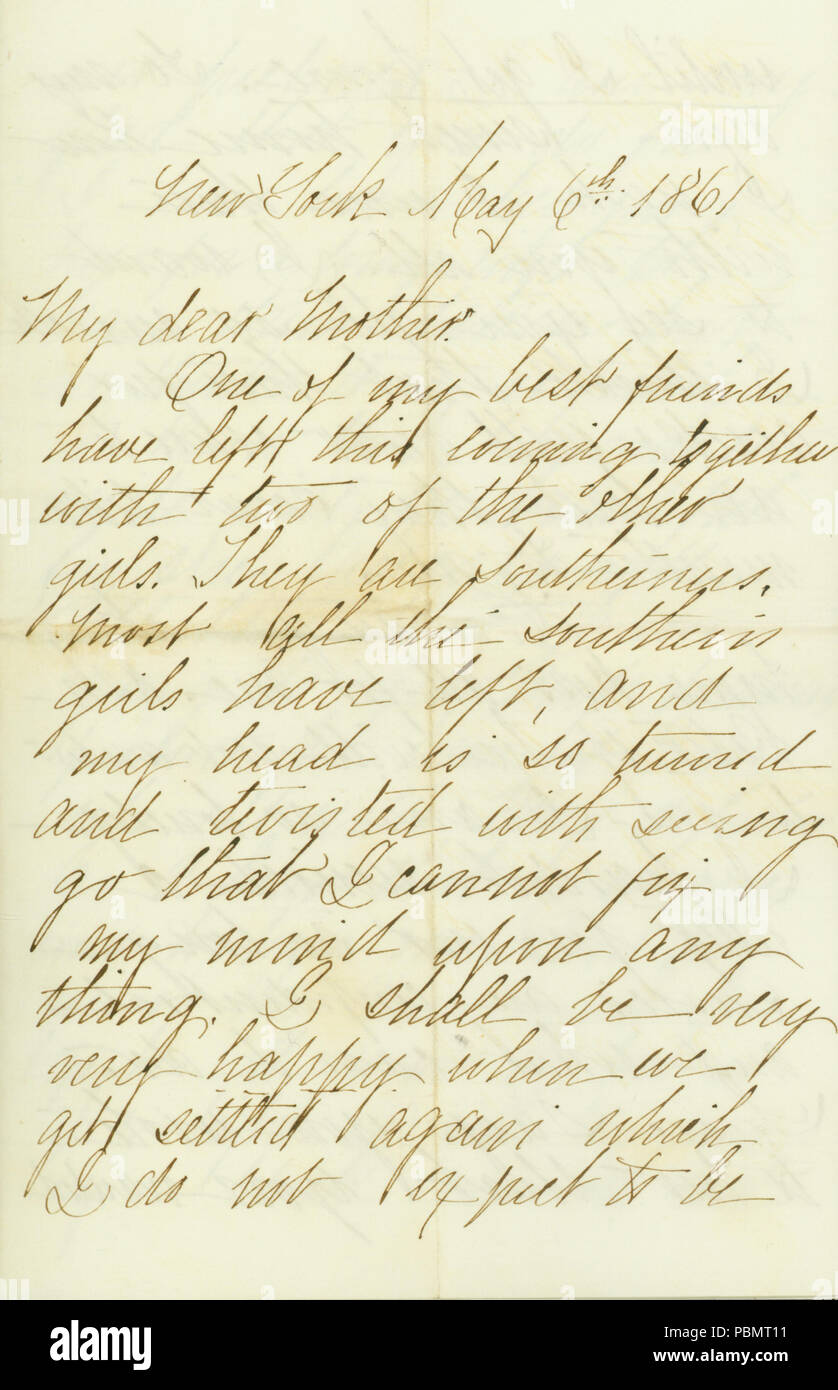 New York May 6th. 1861
My dear Mother.
One of my best friends
have left this evening together
with two of the other
girls. They are Southerners.
Most all the southern
girls have left, and
my head is so turned
and twisted with seeing
go that I cannot fix
my mind upon any
thing. I shall be very
very happy when we
get settled again which
I do not expect to be
alamy
Image ID: PBMT11
www.alamy.com